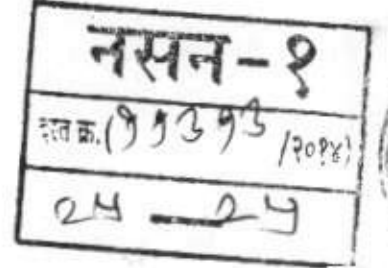 नसन-१
दस्त क्र.(११३१३/२०१४)
२५ — २५